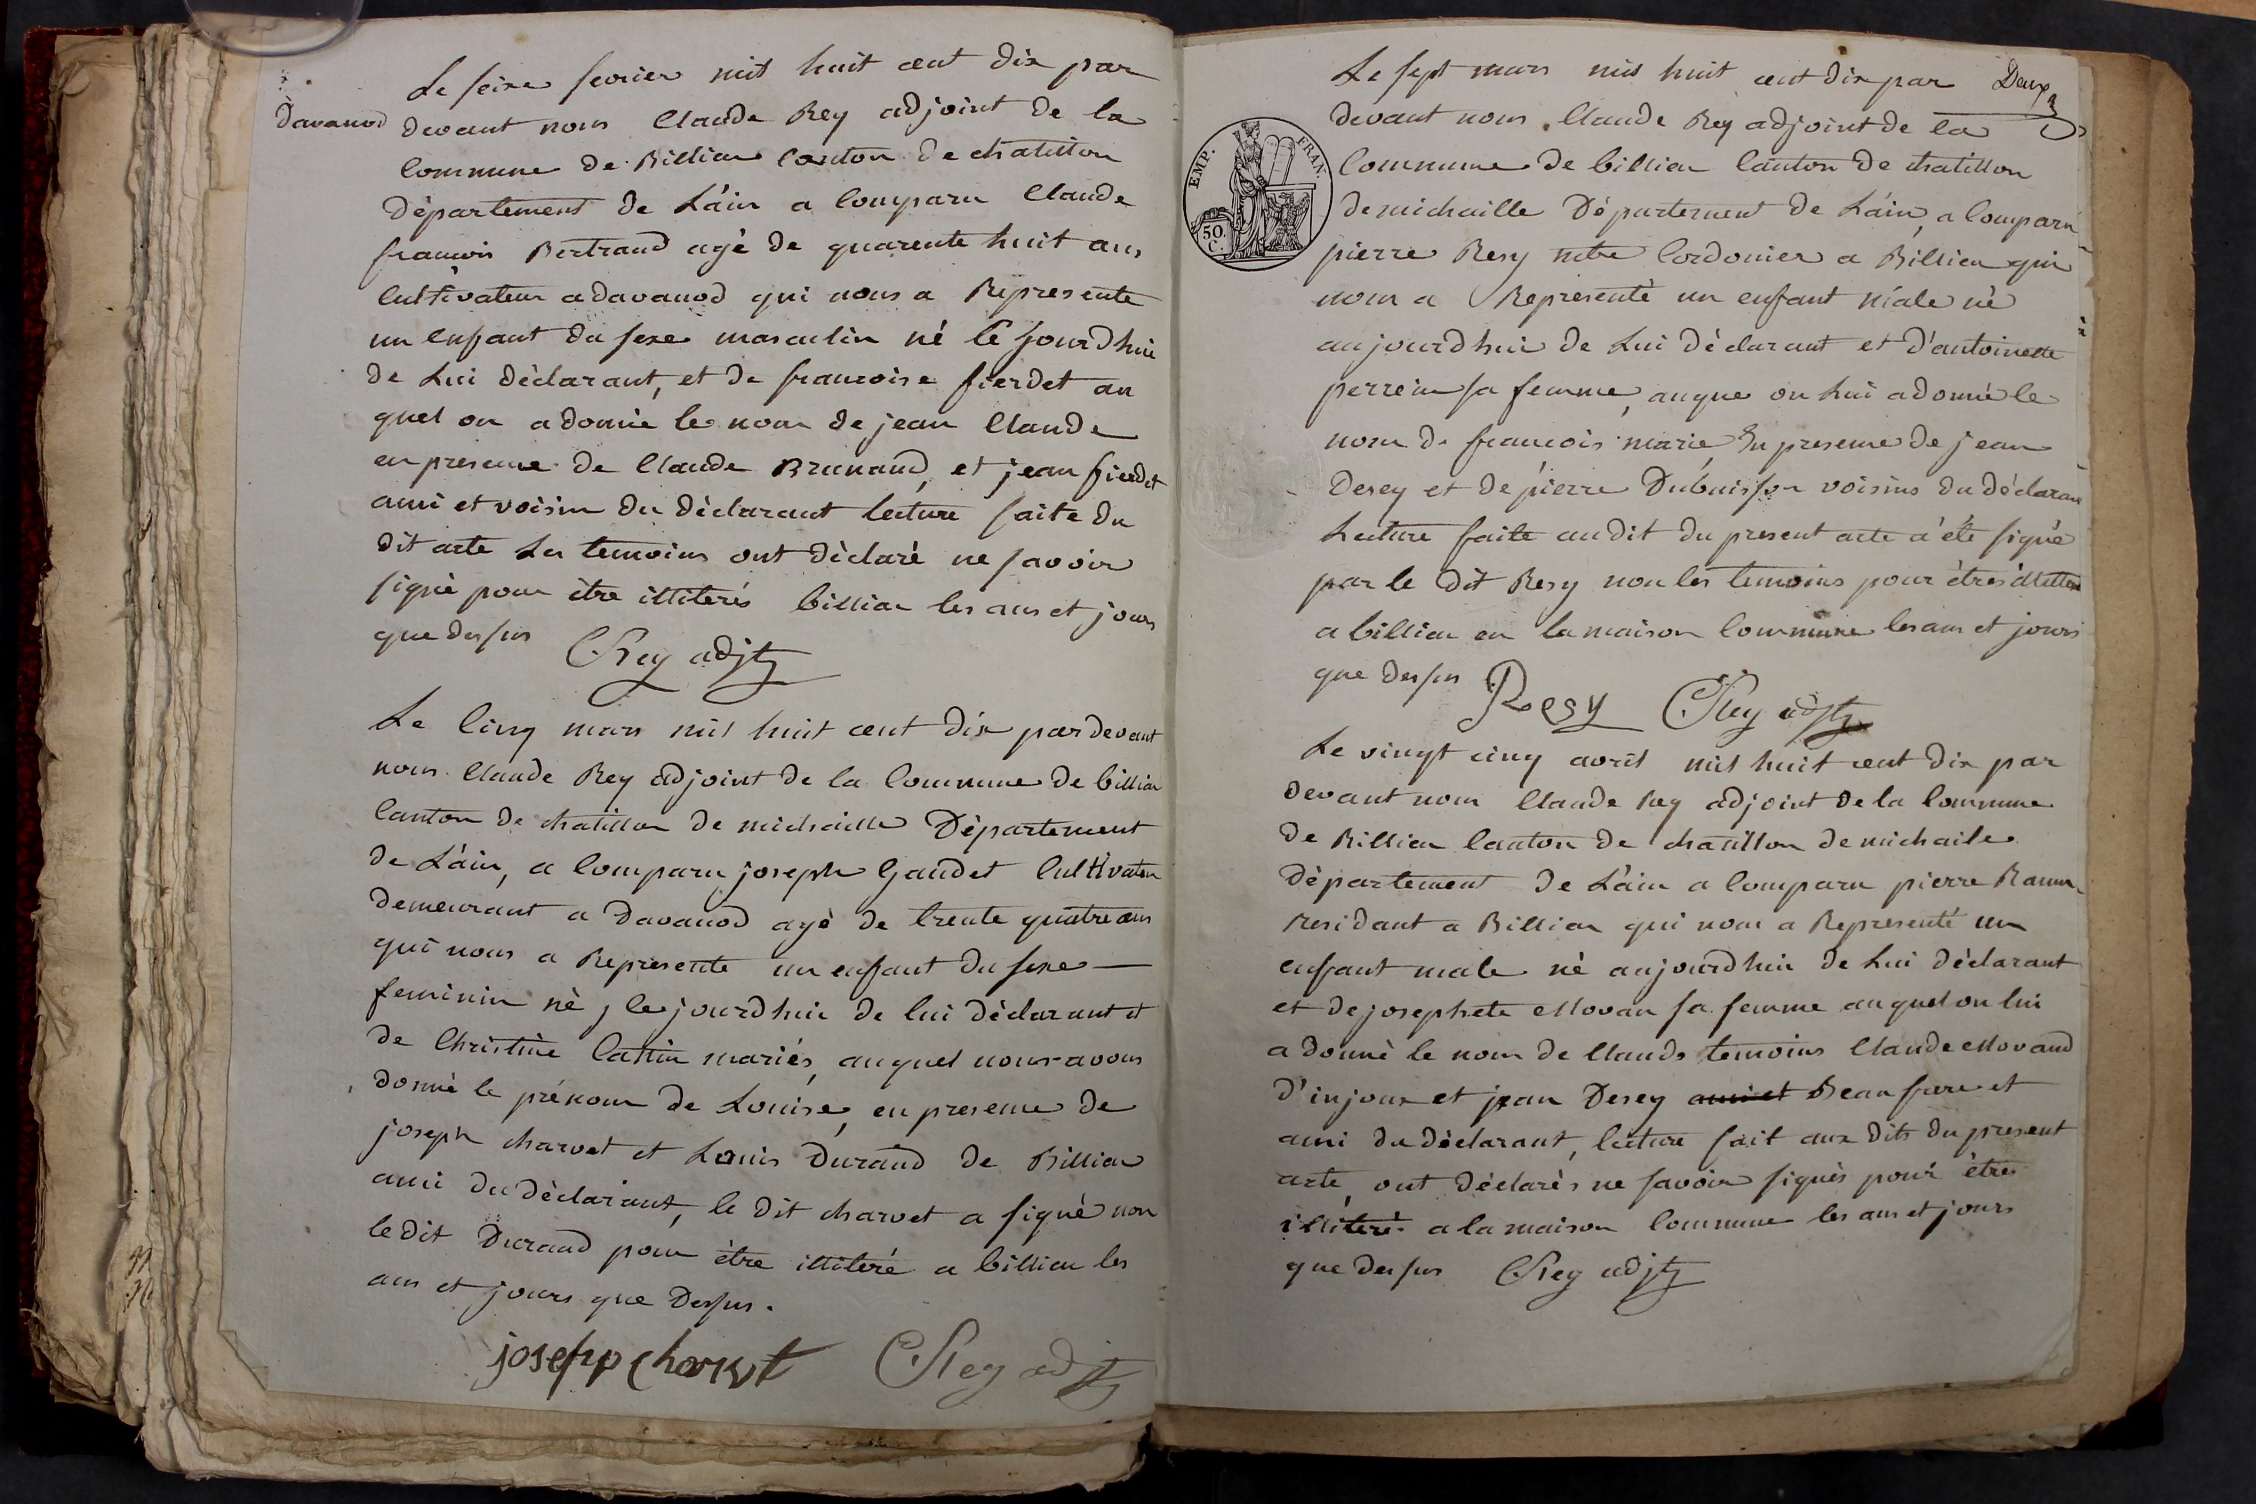 Le seize fevrier mil huit cent dix par
Davanod
devant nous Claude Rey adjoint de la
Commune de Billiau Canton de chatillon
Département de L'ain a Comparu Claude
francois Bertrand agé de quarente huit ans
Cultivateur a davanod qui nous a Represente
un enfant du sexe masculin né Ce jourdhuie
de Lui déclarant, et de francoise fierdet au
quel on a donné le nom de jean Claude
en presence de Claude Brunand, et jean fierdet
ami et voisin du déclarant lecture faite du
dit acte Les temoins ont déclaré ne savoir
signé pour être illiterés billiau les ans et jours
que dessus CRey adjt
Le Cinq mars mil huit cent dix par devant
nous Claude Rey adjoint de la Commune de billiau
Canton de chatillon de michaille Département
de L'ain, a Comparu joseph Gaudet Cultivateu
demeurant a Davanod agé de trente quatre ans
qui nous a Represente un enfant du sexe
feminin né, le jourdhuie de lui déclarant et
de Christine Cattin mariés, auquel nous avons
donné le prénom de Louise, en presence de
joseph charvet et Louis Durand de Billiau
ami du déclarant, le dit charvet a signé non
le dit Durand pour être illiteré a billiau les
ans et jours que Dessus.
joseph charvet CRey adjt
Le sept mars mil huit cent dix par Deux
devant nous Claude Rey adjoint de la
EMP. FRAN.
50. C.
Commune de billiau Canton de chatillon
de michaille Département de L'ain, a Comparu
pierre Resy Cordonier a Billiau qui
nous a Representé un enfant male né
aujourdhuie de Lui déclarant et d'antoinette
perrein sa femme, auque on Lui a donné le
nom de francois marie En presence de jean
Desey et de pierre Dubuisson voisins du déclarant
Lecture faite audit du present acte a été signé
par le dit Resy non les temoins pour être illittere
a billiau en la maison Commune les ans et jours
que dessus Resy CRey adjt
Le vingt cinq avril mil huit cent dix par
devant nous Claude Rey adjoint de la Commune
de Billiau Canton de chatillon de michaile
département de L'ain a Comparu pierre
residant a Billiau qui nous a Representé un
enfant male né aujourdhuie de Lui déclarant
et de josephete Movan sa femme auquel on lui
a donné le nom de Claude temoins Claude Movand
d'injoux et jean Desey ami et Beau frere et
ami du déclarant, lecture fait aux dits du present
acte, ont déclarés ne savoir signés pour être
illiteré a la maison Commune les ans et jours
que dessus CRey adjt